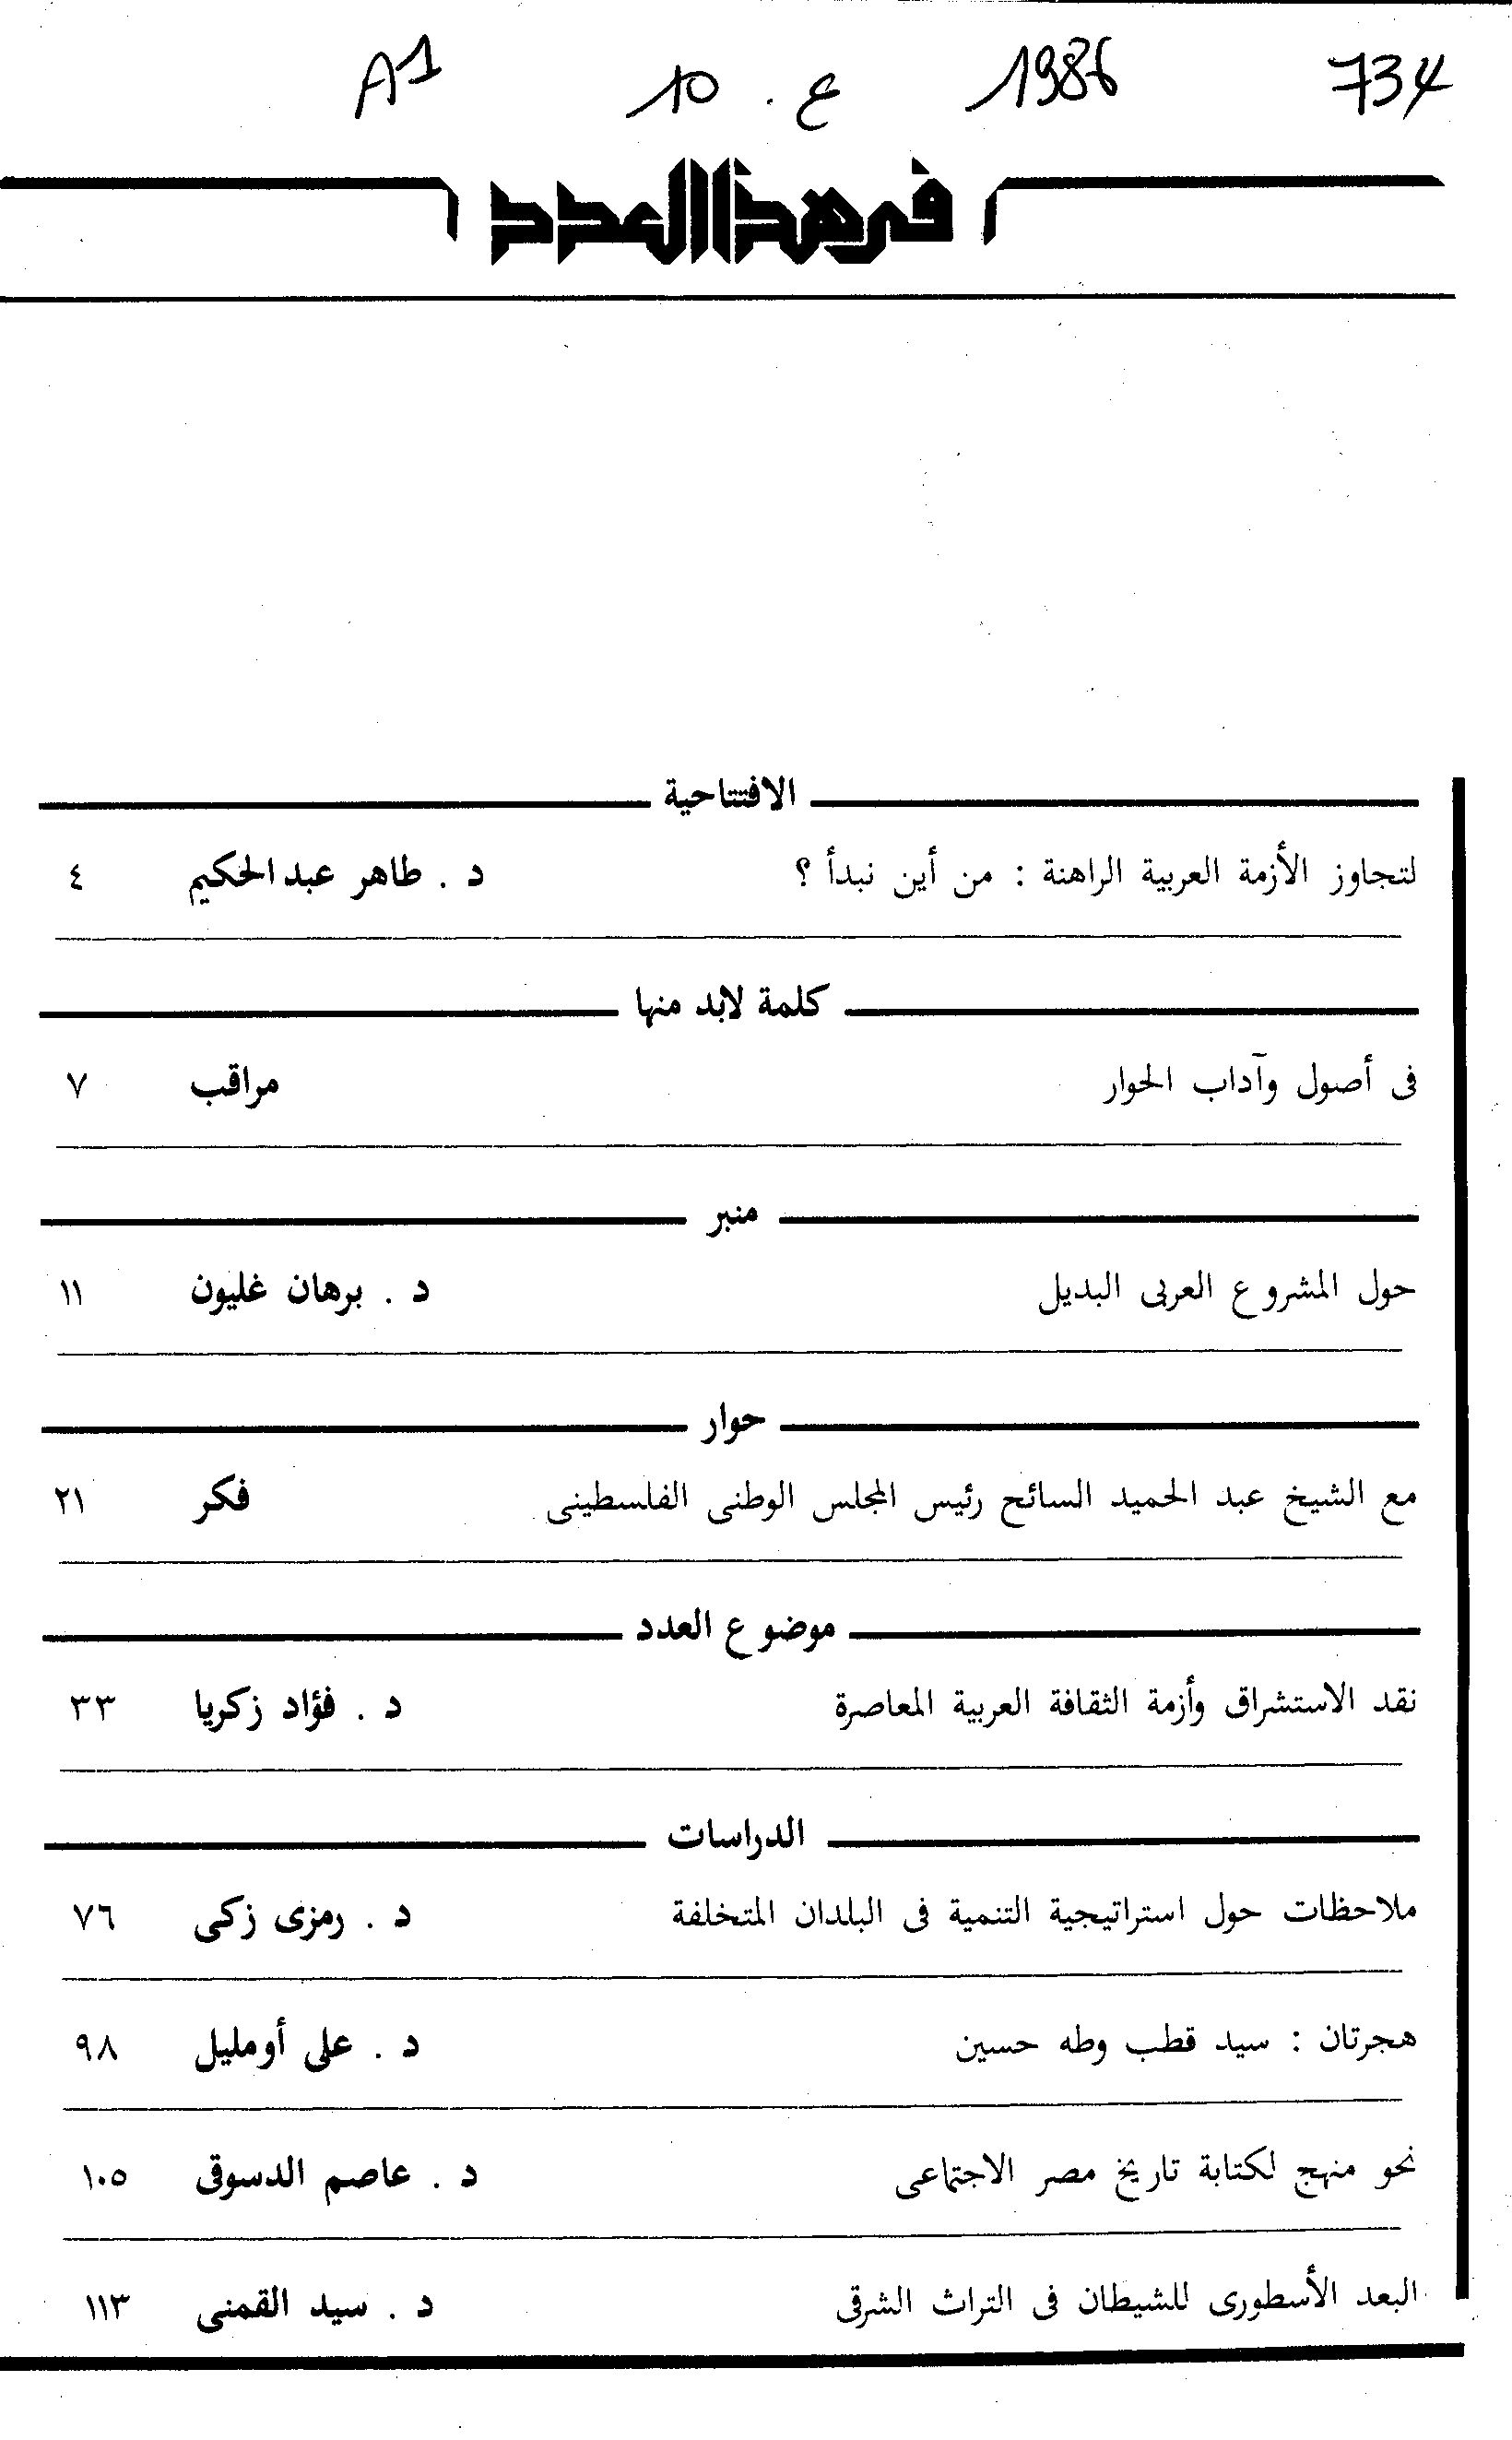 734 1986 ع . 10 A1
فى هذا العدد
الافتتاحية
لتجاوز الأزمة العربية الراهنة : من أين نبدأ ؟ د . طاهر عبد الحكيم ٤
كلمة لابد منها
فى أصول وآداب الحوار مراقب ٧
منبر
حول المشروع العربى البديل د . برهان غليون ١١
حوار
مع الشيخ عبد الحميد السائح رئيس المجلس الوطنى الفلسطينى فكر ٢١
موضوع العدد
نقد الاستشراق وأزمة الثقافة العربية المعاصرة د . فؤاد زكريا ٣٣
الدراسات
ملاحظات حول استراتيجية التنمية فى البلدان المتخلفة د . رمزى زكى ٧٦
هجرتان : سيد قطب وطه حسين د . على أومليل ٩٨
نحو منهج لكتابة تاريخ مصر الاجتماعى د . عاصم الدسوقى ١٠٥
البعد الأسطورى للشيطان فى التراث الشرقى د . سيد القمنى ١١٣